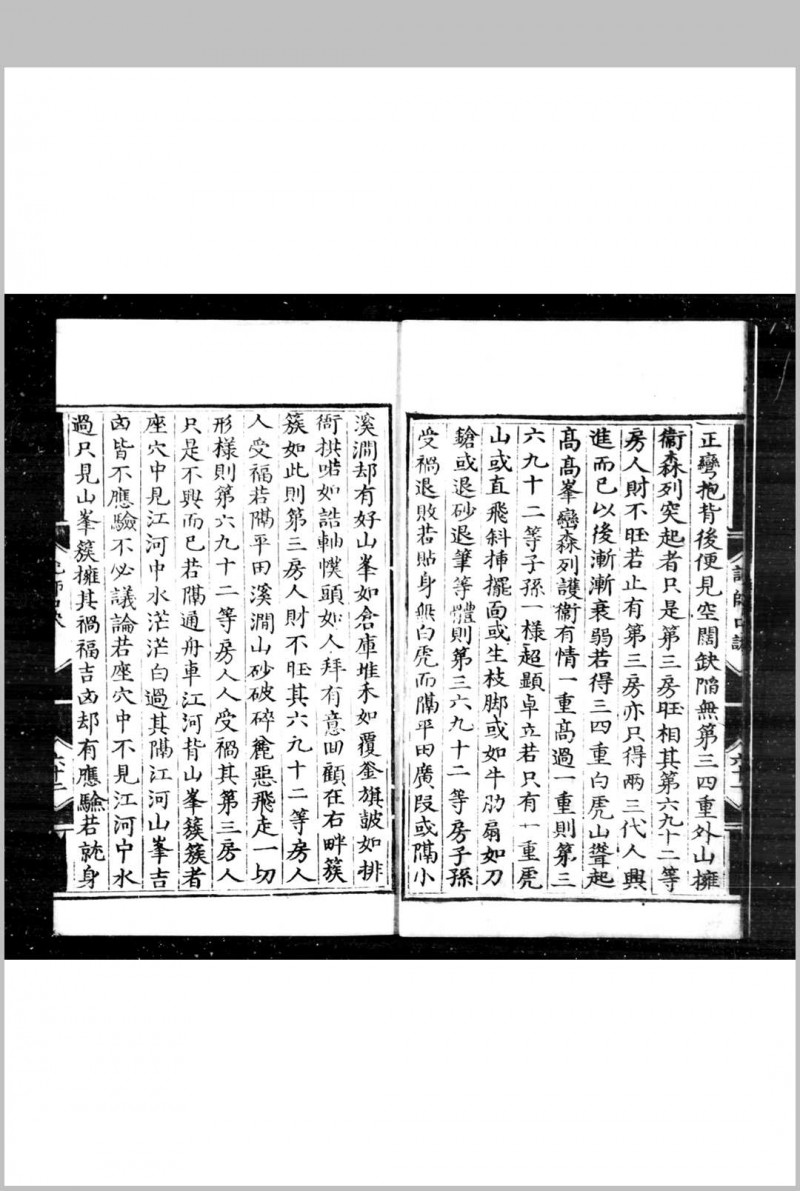 正彎抱背後便見空闊缺陷無第三四重外山擁
衞森列突起者只是第三房旺相其第六九十二等
房人財不旺若止有第三房亦只得兩三代人興
進而已以後漸漸衰弱若得三四重白虎山聳起
高高峯巒森列護衞有情一重高過一重則第三
六九十二等子孫一樣超顯卓立若只有一重虎
山或直飛斜揷擺面或生枝脚或如牛肋扇如刀
鎗或退砂退筆等體則第三六九十二等房子孫
受禍退敗若貼身無白虎而隔平田廣叚或隔小
溪澗却有好山峯如倉庫堆禾如覆釜旗皷如排
衙拱喏如誥軸幞頭如人拜有意回顧在右畔簇
簇如此則第三房人財不旺其六九十二等房人
人受福若隔平田溪澗山砂破碎麄惡飛走一切
形樣則第六九十二等房人人受禍其第三房人
只是不興而已若隔通舟車江河背山峯簇簇者
座穴中見江河中水茫茫白過其隔江河山峯吉
凶皆不應驗不必議論若座穴中不見江河中水
過只見山峯簇擁其禍福吉凶却有應驗若就身